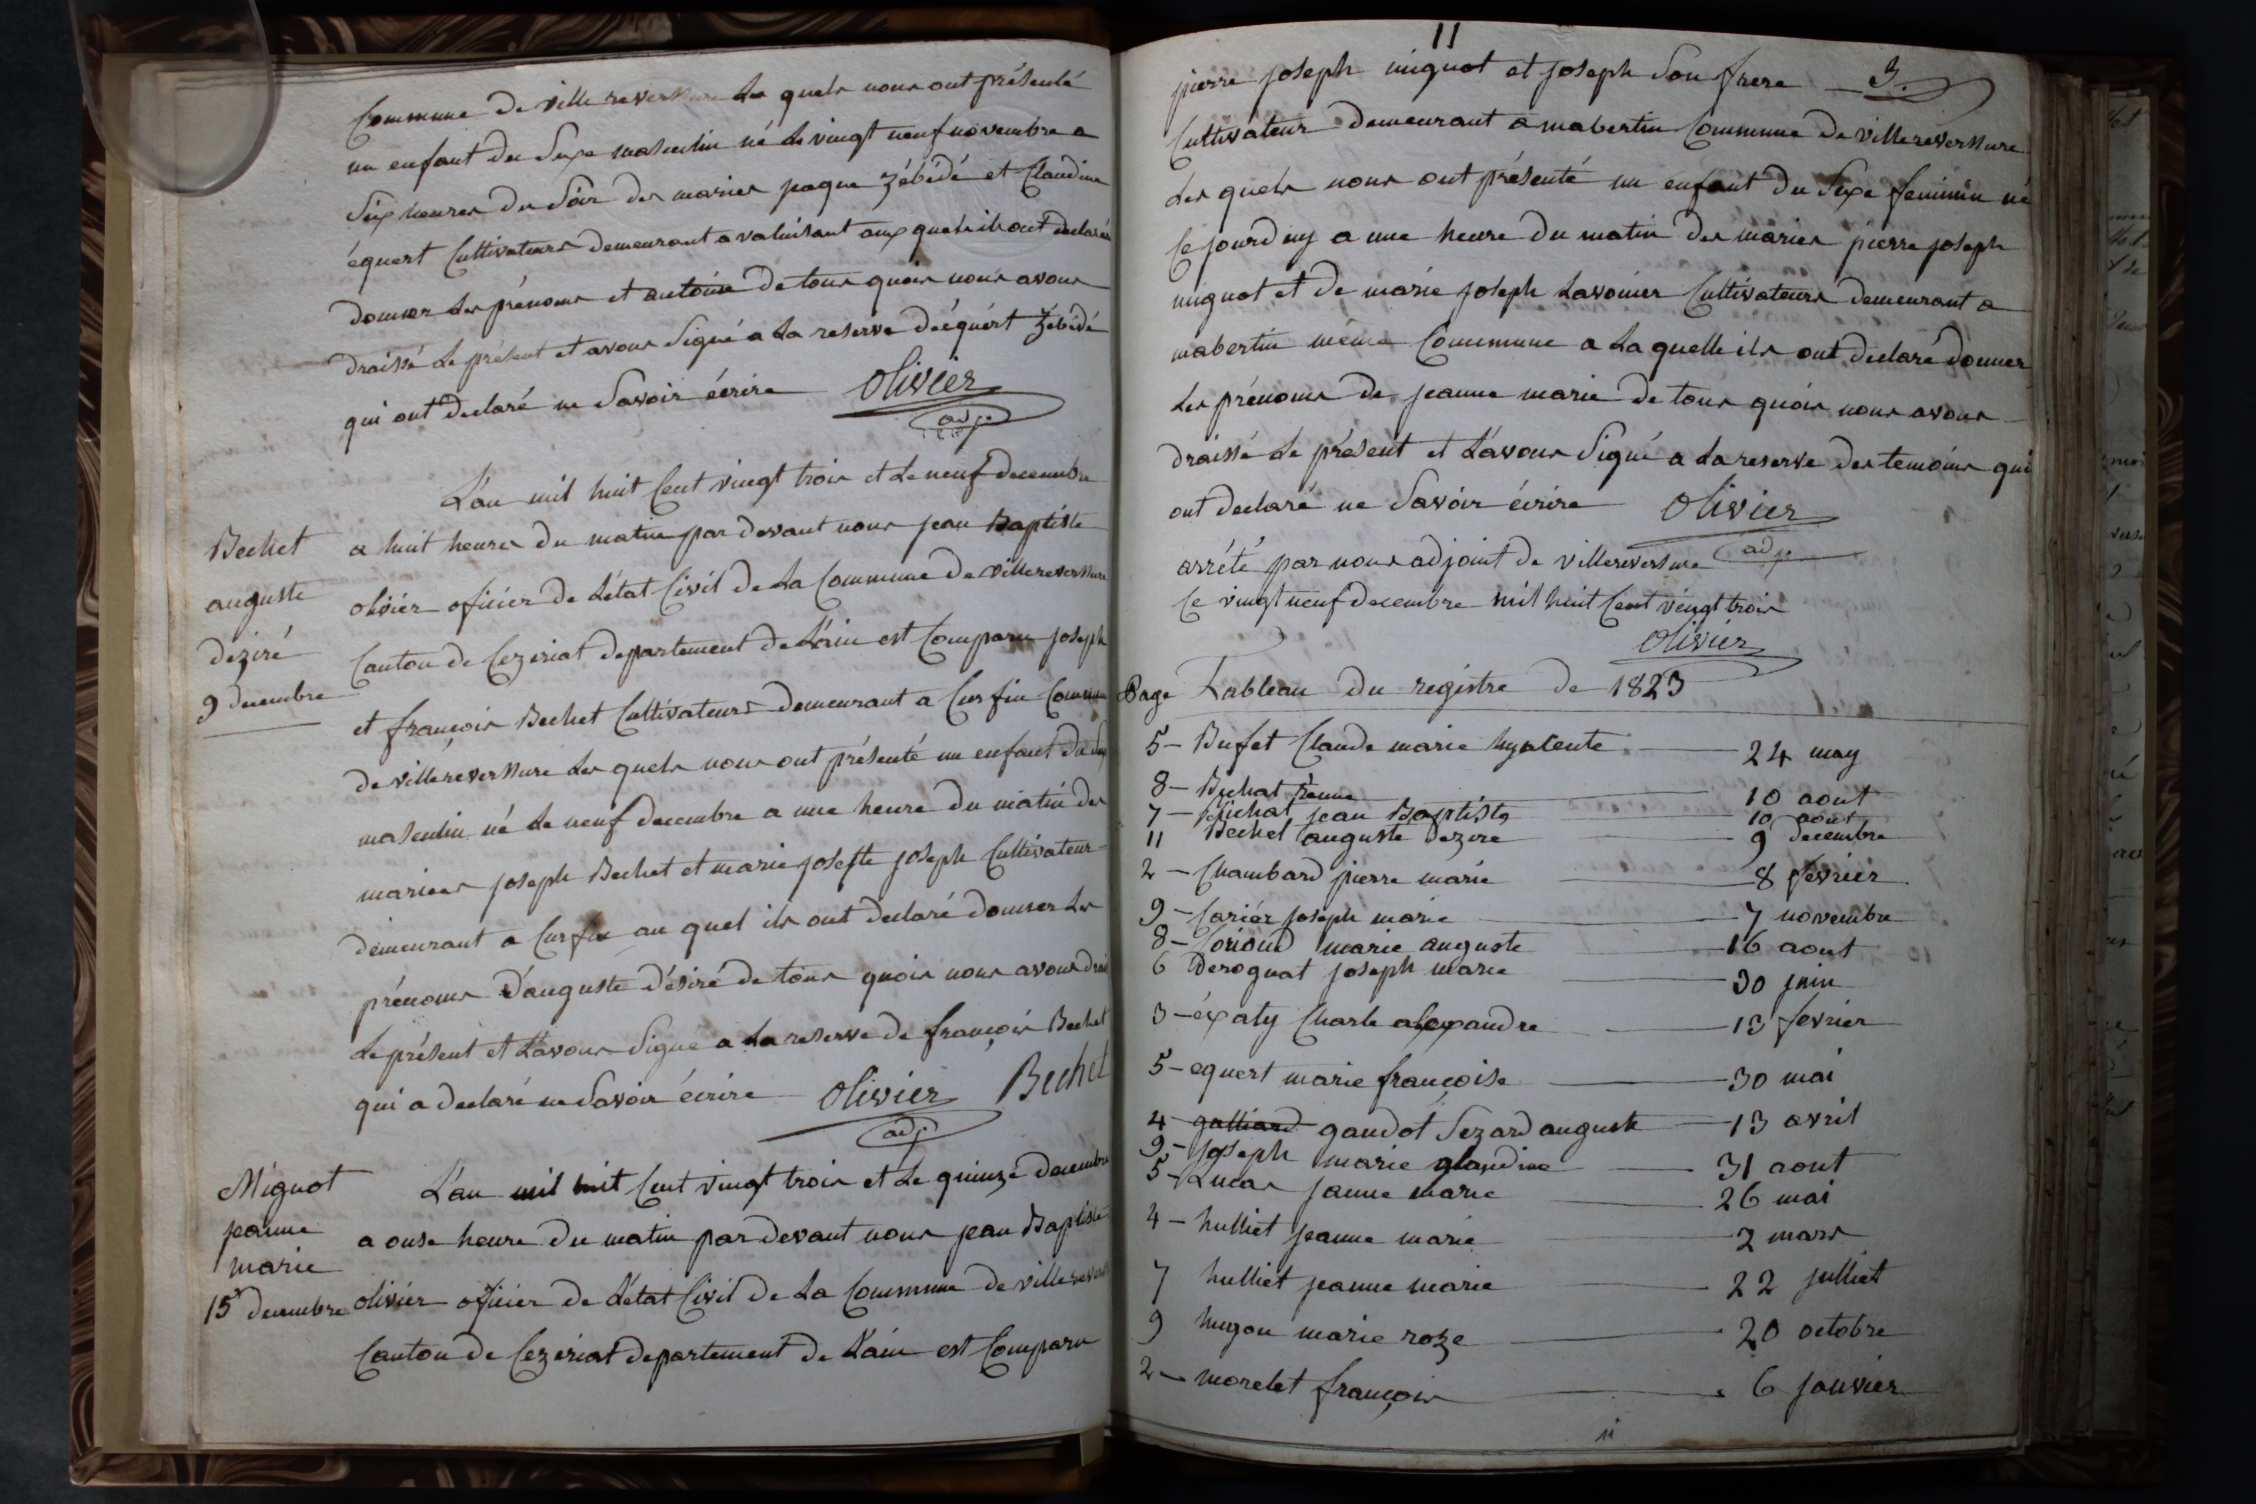 Commune de villereversure Les quels nous ont présenté
un enfant du Sexe masculin né Le vingt neuf novembre a
Six heures du Soir des mariés jaque Zébédé et Claudine
équert Cultivateurs demeurant a valuisant aux quels ils ont declarés
donner Les prénoms et antoine de tous quois nous avons
draissé Le présent et avons Signé a La reserve d'équért Zébédé
qui ont declaré ne Savoir écrire Olivier
adj
L'an mil huit Cent vingt trois et Le neuf decembre
Bechet
auguste
deziré
9 decembre
a huit heures du matin par devant nous jean Baptiste
olivier oficier de L'état Civil de La Commune de villereversure
Canton de Cezeriat departement de L'ain est Comparu joseph
et françois Bechet Cultivateurs demeurant a Cur fin Commune
de villereversure Les quels nous ont présenté un enfant du Sexe
masculin né Le neuf decembre a une heure du matin des
mariees joseph Bechet et marie josefte joseph Cultivateur
demeurant a Curfin au quel ils ont declaré donner Les
prénoms d'auguste désiré de tous quois nous avons drai
Le présent et L'avons Signé a La reserve de françois Bechet
qui a declaré ne Savoir écrire Olivier Bechet
adj
Mignot
jeanne
marie
15 decembre
L'an mil huit Cent vingt trois et Le quinze decembre
a onse heure du matin par devant nous jean Baptiste
olivier oficier de L'état Civil de La Commune de villerevers
Canton de Cezériat departement de L'ain est Comparu
11
pierre joseph mignot et joseph Son frere
Cultivateur demeurant a mabertin Commune de villereversure
Les quels nous ont présenté un enfant du Sexe feminin né
Ce jourd'uy a une heure du matin des mariés pierre joseph
mignot et de marie joseph Lavonier Cultivateurs demeurant a
mabertin même Commune a La quelle ils ont declaré donner
Les prénoms de jeanne marie de tous quois nous avons
draissé Le présent et L'avons Signé a La reserve des temoins qui
ont declaré ne Savoir écrire Olivier
adj
arrété par nous adjoint de villereversure
Ce vingt neuf decembre mil huit Cent vingt trois
Olivier
Page Tableau du registre de 1823
5 - Bufet Claude marie hyatente 24 may
8 - Bechat 10 aout
7 - Bichat jean Baptiste 10 aout
11 Bechet auguste dezire 9 decembre
2 - Chambard pierre marie 8 fevrier
9 - Cariér joseph marie 7 novembre
8 - Corioud marie auguste 16 aout
6 Deroguat joseph marie 30 juin
3 - éxaty Charle alexandre 13 fevrier
5 - equert marie françoise 30 mai
4 galliard gaudot Sezard auguste 13 avril
9 - joseph marie glaudine 31 aout
5 - Lucas janne marie 26 mai
4 - hulliet jeanne marie 2 mars
7 hulliet jeanne marie 22 julliet
9 hugon marie roze 20 octobre
2 - morelet françois 6 janvier
11